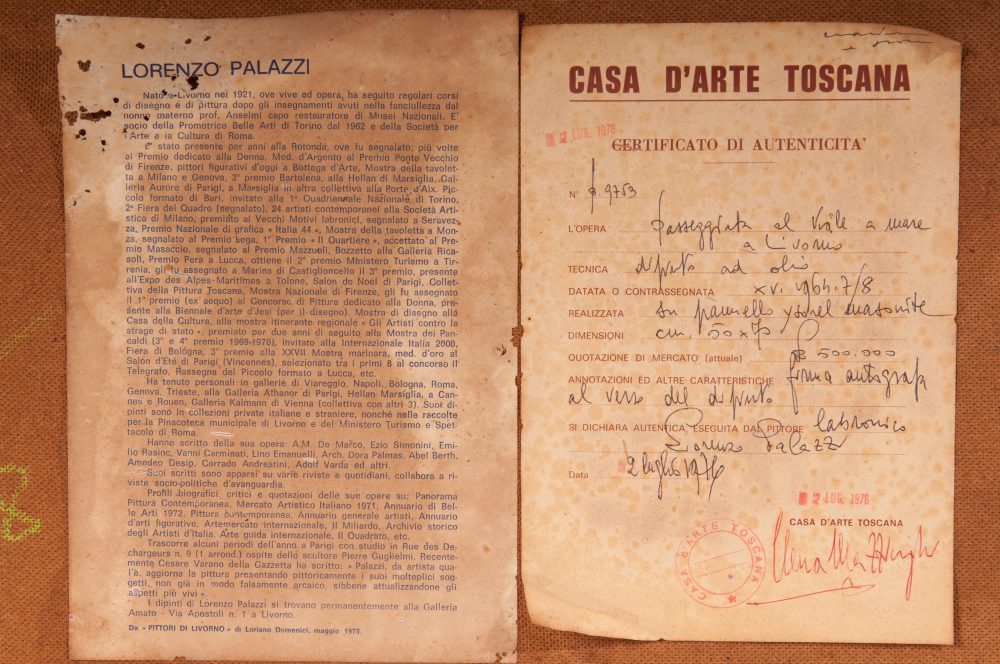 LORENZO PALAZZI
Nato a Livorno nel 1921, ove vive ed opera, ha seguito regolari corsi
di disegno e di pittura dopo gli insegnamenti avuti nella fanciullezza dal
nonno materno prof. Anselmi capo restauratore di Musei Nazionali. E'
socio della Promotrice Belle Arti di Torino dal 1962 e della Società per
l'Arte e la Cultura di Roma.
E' stato presente per anni alla Rotonda, ove fu segnalato; più volte
al Premio dedicato alla Donna, Med. d'Argento al Premio Ponte Vecchio
di Firenze, pittori figurativi d'oggi a Bottega d'Arte, Mostra della tavolet-
ta a Milano e Genova, 3° premio Bartolena, alla Hellan di Marsiglia, Gal-
lerie Aurore di Parigi, a Marsiglia in altra collettiva alla Porte d'Aix. Pic-
colo formato di Bari, invitato alla 1ª Quadriennale Nazionale di Torino,
2ª Fiera del Quadro (segnalato), 24 artisti contemporanei alla Società Arti-
stica di Milano, premiato ai Vecchi Motivi labronici, segnalato a Seravez-
za, Premio Nazionale di grafica « Italia 44 », Mostra della tavoletta a Mon-
za, segnalato al Premio Lega, 1° Premio « Il Quartiere », accettato al Pre-
mio Masaccio, segnalato al Premio Mazzuoli, Bozzetto alla Galleria Rica-
soli, Premio Pora a Lucca, ottiene il 2° premio Ministero Turismo a Tir-
renia, gli fu assegnato a Marina di Castiglioncello il 3° premio, presente
all'Expo des Alpes-Maritimes a Tolone, Salon de Noel di Parigi, Collet-
tiva della Pittura Toscana, Mostra Nazionale di Firenze, gli fu assegnato
il 1° premio (ex aequo) al Concorso di Pittura dedicato alla Donna, pre-
sente alla Biennale d'arte d'Jesi (per il disegno). Mostra di disegno alla
Casa della Cultura, alla mostra itinerante regionale « Gli Artisti contro la
strage di stato », premiato per due anni di seguito alla Mostra dei Pan-
caldi (3° e 4° premio 1969-1970), invitato alla Internazionale Italia 2000,
Fiera di Bologna, 3° premio alla XXVII Mostra marinara, med. d'oro al
Salon d'Eté di Parigi (Vincennes), selezionato tra i primi 8 al concorso Il
Telegrafo, Rassegna del Piccolo formato a Lucca, etc.
Ha tenuto personali in gallerie di Viareggio, Napoli, Bologna, Roma,
Genova, Trieste, alla Galleria Athanor di Parigi, Hellan Marsiglia, a Can-
nes e Rouen, Galleria Kalmann di Vienna (collettiva con altri 3). Suoi di-
pinti sono in collezioni private italiane e straniere, nonché nelle raccolte
per la Pinacoteca municipale di Livorno e del Ministero Turismo e Spet-
tacolo di Roma.
Hanno scritto della sua opera: A.M. De Marco, Ezio Simonini, Emi-
lio Rasino, Vanni Carminati, Lino Emanuelli, Arch. Dora Palmas, Abel Berth,
Amedeo Desip, Corrado Andreatini, Adolf Varda ed altri.
Suoi scritti sono apparsi su varie riviste e quotidiani, collabora a ri-
viste socio-politiche d'avanguardia.
Profili biografici, critici e quotazioni delle sue opere su: Panorama
Pittura Contemporanea, Mercato Artistico Italiano 1971, Annuario di Bel-
le Arti 1972, Pittura contemporanea, Annuario generale artisti, Annuario
d'arti figurative, Artemercato internazionale, Il Miliardo, Archivio storico
degli Artisti d'Italia, Arte guida internazionale, Il Quadrato, etc.
Trascorre alcuni periodi dell'anno a Parigi con studio in Rue des De-
chargeurs n. 9 (1 arrond.) ospite dello scultore Pierre Guglielmi. Recente-
mente Cesare Varano della Gazzetta ha scritto: « Palazzi, da artista qua-
l'è, aggiorna la pittura presentando pittoricamente i suoi molteplici sog-
getti, non già in modo falsamente arcaico, sibbene attualizzandone gli
aspetti più vivi ».
I dipinti di Lorenzo Palazzi si trovano permanentemente alla Galleria
Amato - Via Apostoli n. 1 a Livorno.
Da « PITTORI DI LIVORNO » di Loriano Domenici, maggio 1973.
CASA D'ARTE TOSCANA
2 LUG. 1976
CERTIFICATO DI AUTENTICITA'
N° 9753
L'OPERA passeggiata al Viale a mare
a Livorno
TECNICA dipinto ad olio
DATATA O CONTRASSEGNATA
REALIZZATA su pannello masonite
DIMENSIONI cm. 50x70
QUOTAZIONE DI MERCATO (attuale) 500.000
ANNOTAZIONI ED ALTRE CARATTERISTICHE firma autografa
al verso del dipinto
SI DICHIARA AUTENTICA, ESEGUITA DAL PITTORE labronico
Lorenzo Palazzi
Data 2 luglio 1976
2 LUG. 1976
CASA D'ARTE TOSCANA
CASA D'ARTE TOSCANA